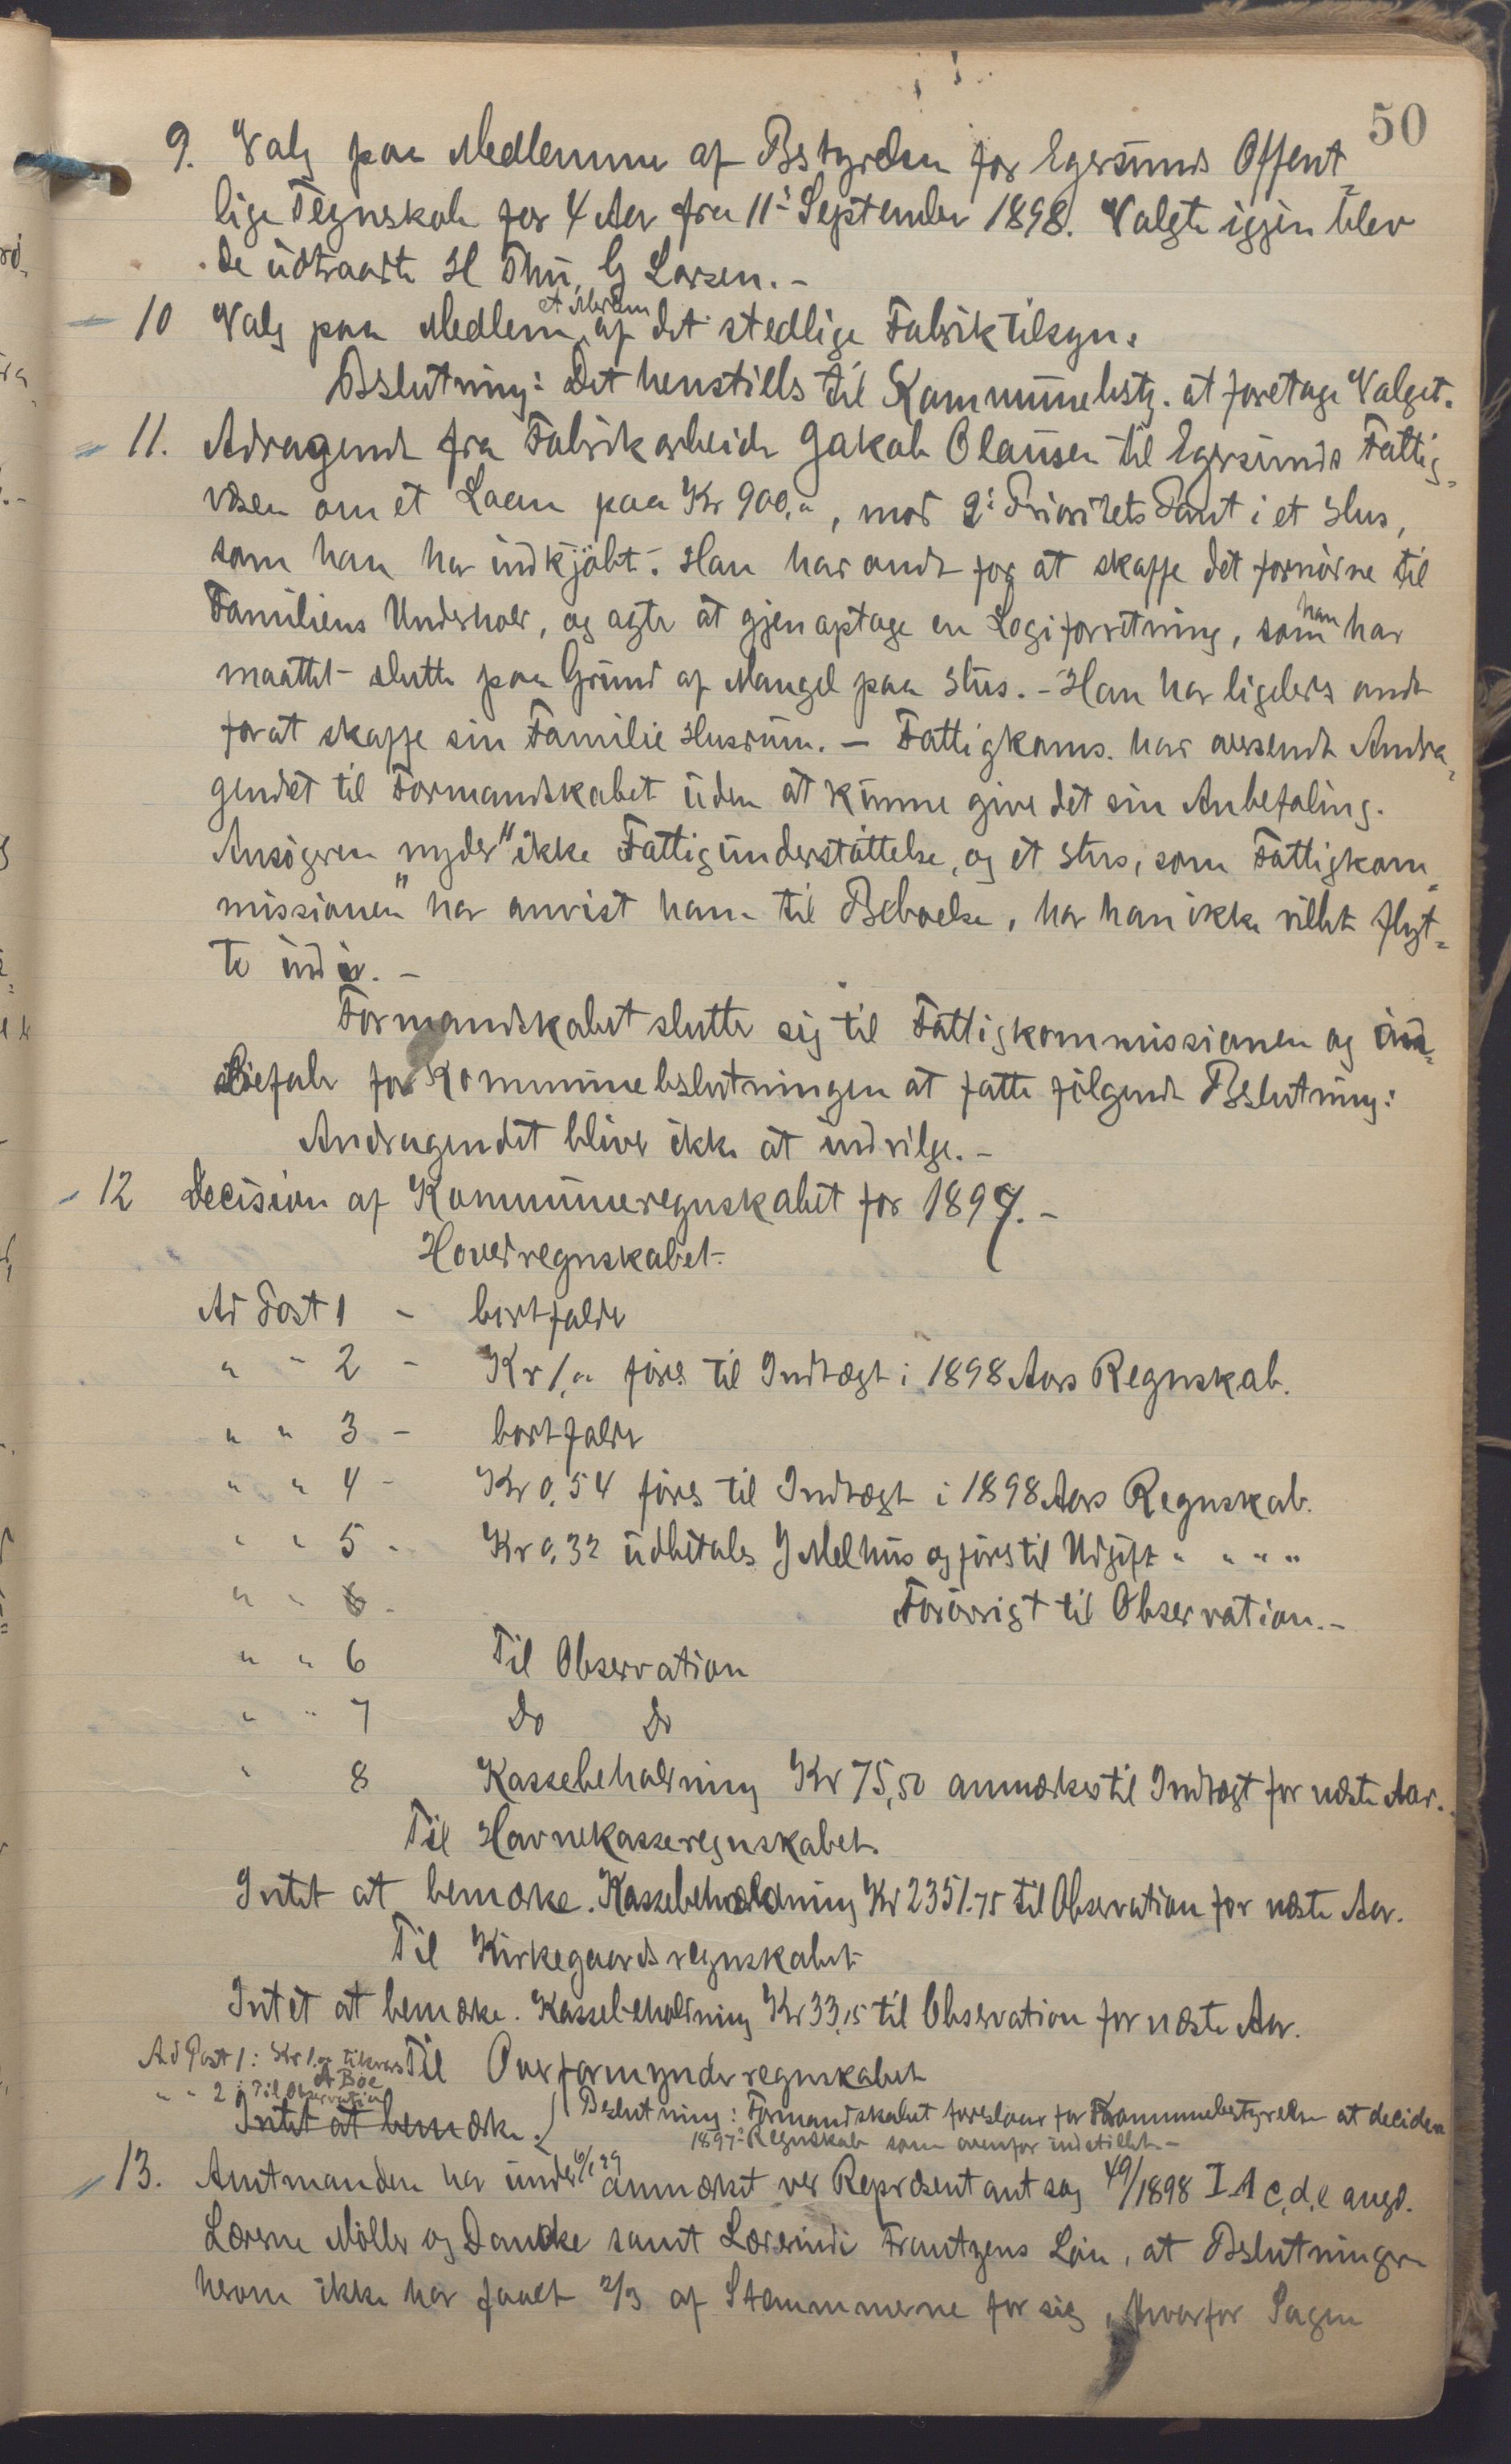 50
9. Valg paa Medlemmer af Bestyrelsen for Egersunds Offent=
lige Tegneskole for 4 Aar fra 11: September 1898. Valgte igjen blev
de udtraadte H Thu, G Larsen. -
10 Valg paa Medlem et Medlem af det stedlige Fabriktilsyn.
Beslutning: Det henstilles til Kommunebest. at foretage Valget.
11. Adragende fra Fabrikarbeider Jakob Olausen til Egersunds Fattig=
væsen om et Laan paa Kr 900,", mod 2: Prioritets Pant i et Hus,
som han har indkjöbt. Han har ondt for at skaffe det fornödne til
Familiens Underhold, og agter at gjenoptage en Logiforretning, som han har
maattet slutte paa Grund af Mangel paa Hus. - Han har ligeledes ondt
for at skaffe sin Familie Husrum. - Fattigkoms. har oversendt Andra=
gendet til Formandskabet uden at kunne give det sin Anbefaling.
Ansögeren nyder "ikke Fattigunderstöttelse, og et Hus, som Fattigkom=
missionen" har anvist ham til Beboelse, har han ikke villet flyt=
te ind i. -
Formandskabet slutter sig til Fattigkommissionen og
befaler for Kommunebeslutningen at fatte fölgende Beslutning:
Andragendet bliver ikke at indvilge. -
12 Decision af Kommuneregnskabet for 1897. -
Hovedregnskabet.
Ad Post 1 - bortfalder
" " 2 - Kr 1," föres til Indtægt i 1898 Aars Regnskab.
" " 3 - bortfalder
" " 4 - Kr 0,54 föres til Indtægt i 1898 Aars Regnskab.
" " 5 - Kr 0,32 udbetales J Melhus og föres til Udgift " " " "
" " 6 - Forövrigt til Observation. -
" " 6 Til Observation
" " 7 Do Do
" 8 Kassebeholdning Kr 75,50 anmærkes til Indtægt for næste Aar.
Til Havnekasseregnskabet.
Intet at bemærke. Kassebeholdning Kr 2351.75 til Observation for næste Aar.
Til Kirkegaardsregnskabet
Intet at bemærke. Kassebeholdning Kr 33,15 til Observation for næste Aar.
Ad Post 1: Kr 1," tilkomes A Böe
Til Overformynderregnskabet
" " 2: Til Observation
Intet at bemærke. { Beslutning: Formandskabet foreslaar for Kommunebestyrelsen at decidere
1897: Regnskab som ovenfor indstillet. -
13. Amtmanden har under 6/ anmærket ved Repræsentantsag 49/1898 I A c,d,e angd.
Lærerne Möller og Dancke samt Lærerinde Frantzens Lön, at Beslutningen
herom ikke har faaet 2/3 af Stemmerne for sig, hvorfor Sagen